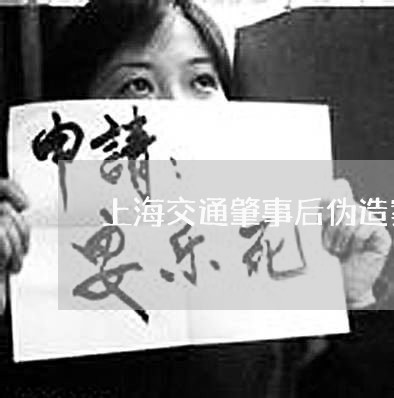 申請：
上海交通肇事后伪造
安乐死